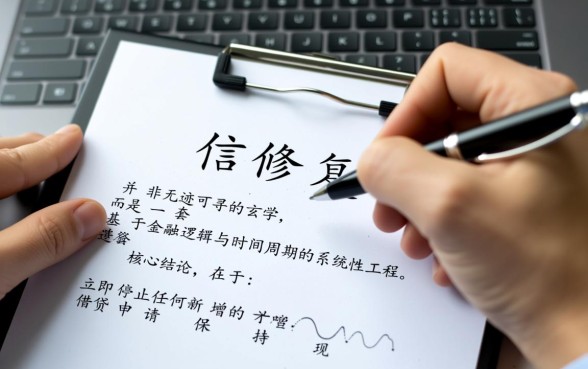 信修复
并 非无迹可寻的玄学，
而是 一 套
基 于金融逻辑与时间周期的系统性工程。
核心结论，在于：
立即 停止任何新 增的
借贷 申 请 保 持 现